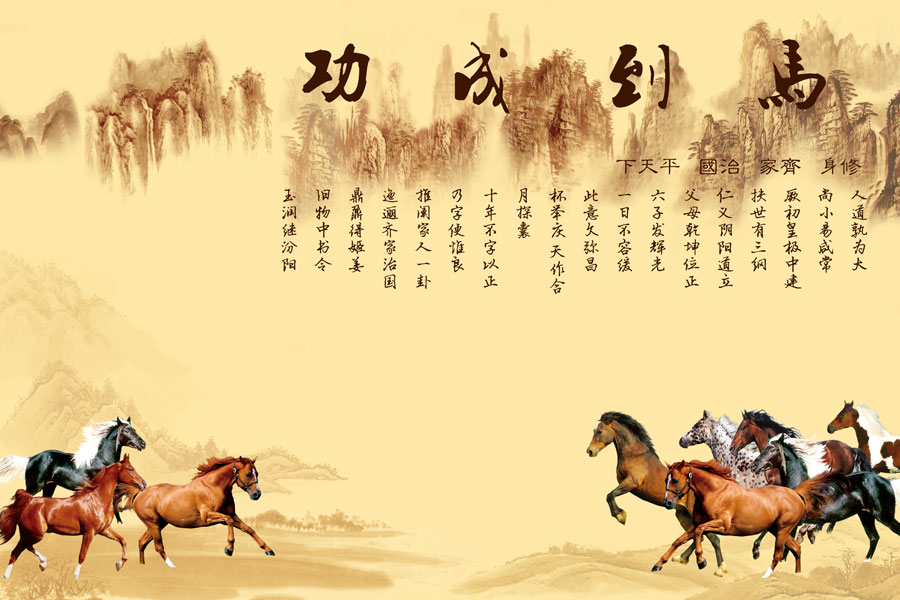 馬到成功
修身 齊家 治國 平天下
人道孰为大
尚小易咸常
厥初皇极中建
扶世有三纲
仁义阴阳道立
父母乾坤位正
六子发辉光
一日不容缓
此意久弥昌
杯举庆天作合
月探囊
十年不字以正
乃字使惟良
推阐家人一卦
迤逦齐家治国
鼎鼐得姬姜
旧物中书令
玉润继汾阳